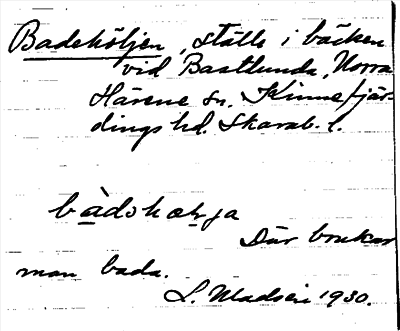 Badeköljen, ställe i bäcken
vid Baattlunda, Norra
Härene sn. Kinnefjär-
dings hd. Skarab. l.
bàdshæļja
Där brukar
man bada.
L. Madsén 1930.